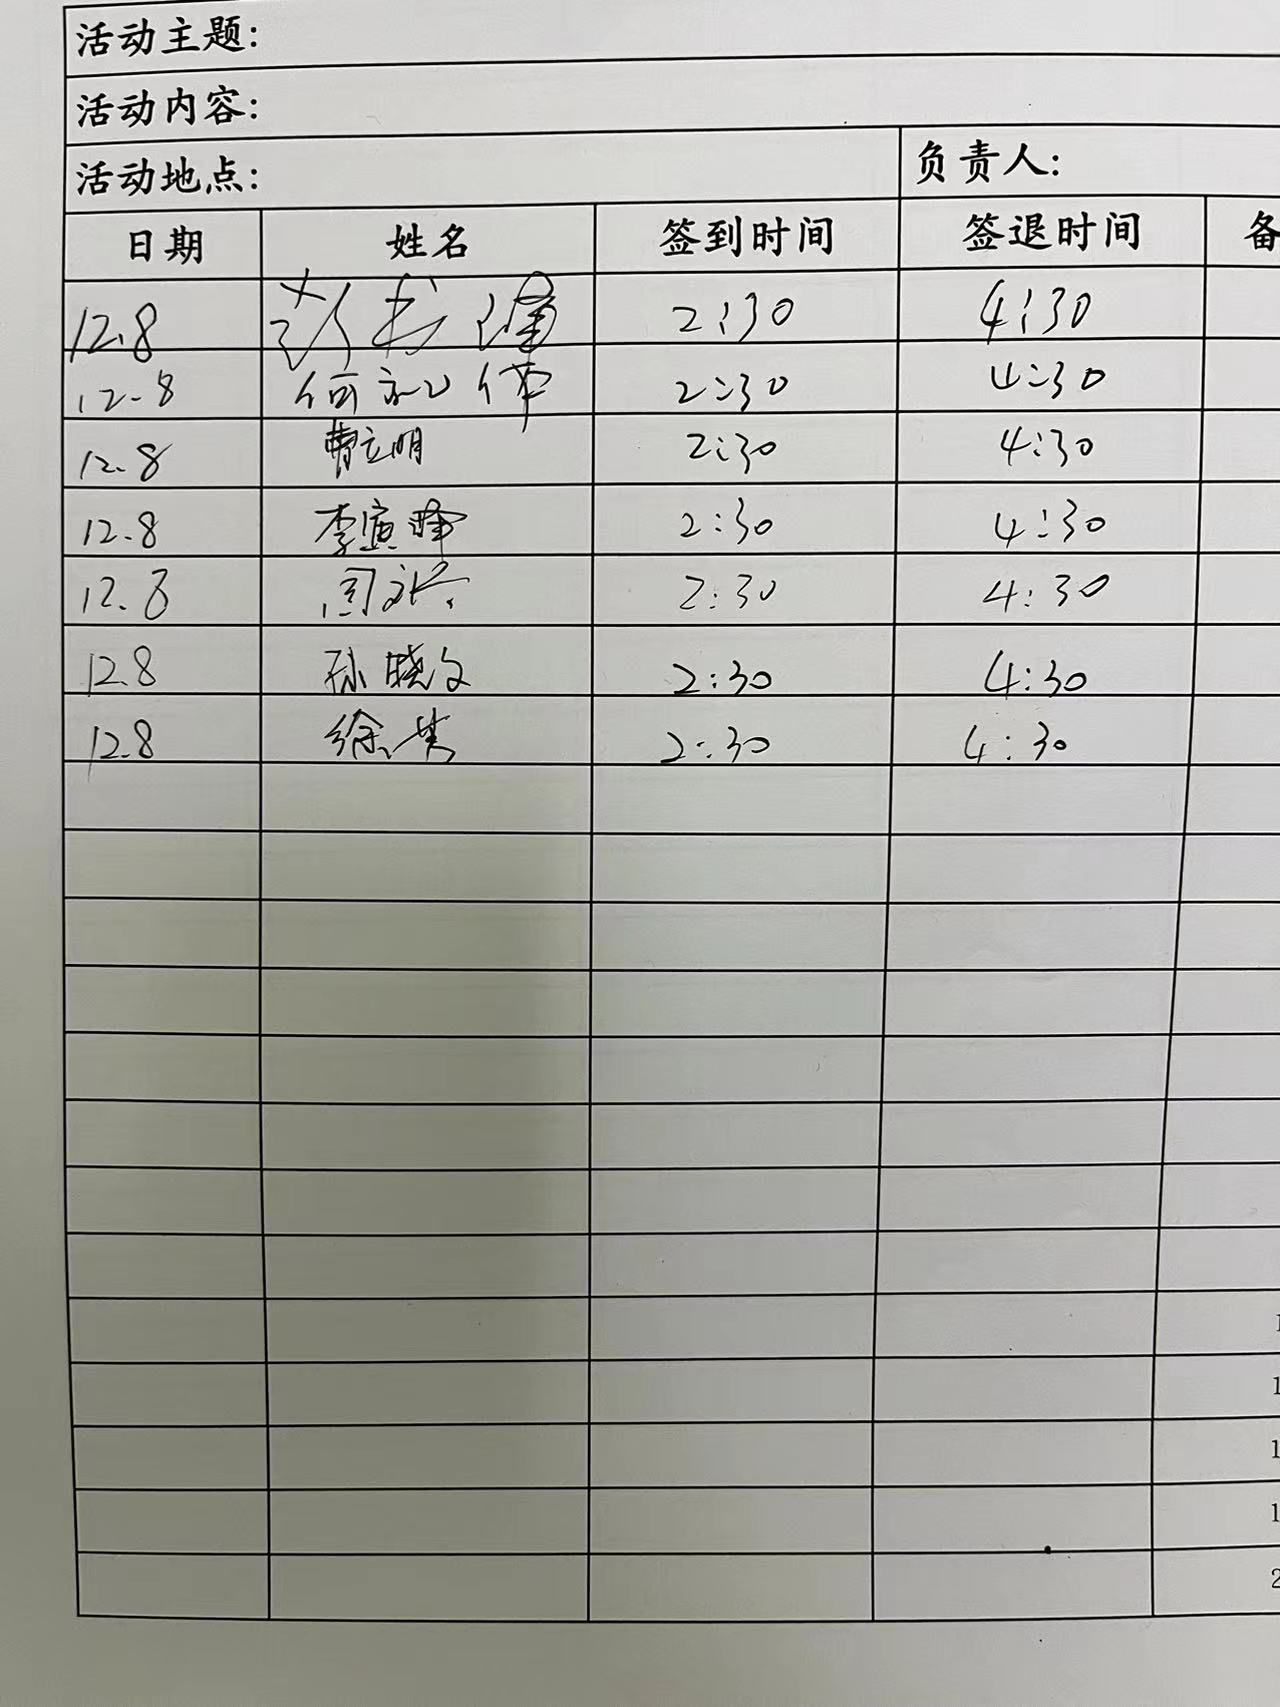 活动主题:
活动内容:
活动地点: 负责人:
日期 姓名 签到时间 签退时间 备
12.8 2:30 4:30
12.8 何 伟 2:30 4:30
12.8 曹立明 2:30 4:30
12.8 李寅峰 2:30 4:30
12.8 周 2:30 4:30
12.8 孙晓文 2:30 4:30
12.8 徐 2:30 4:30
1
1
1
1
2